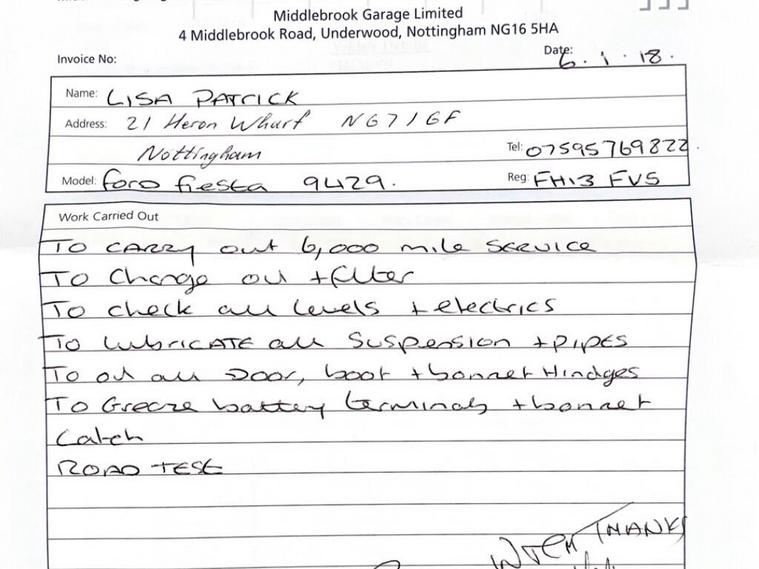 Middlebrook Garage Limited
4 Middlebrook Road, Underwood, Nottingham NG16 5HA
Invoice No:
Date: 6.1.18.
Name: LISA PATRICK
Address: 21 Heron Wharf NG7 1GF
Nottingham
Tel: 07595769822.
Model: ford fiesta 9429.
Reg: FH13 FVS
Work Carried Out
TO CARRY out 6,000 mile service
TO Change oil + filter
TO check all levels + electrics
TO LUBRICATE all Suspension + PIPES
TO oil all Door, boot + bonnet Hindges
TO Greaze battery terminals + bonnet
Catch
ROAD TEST
WITH THANKS